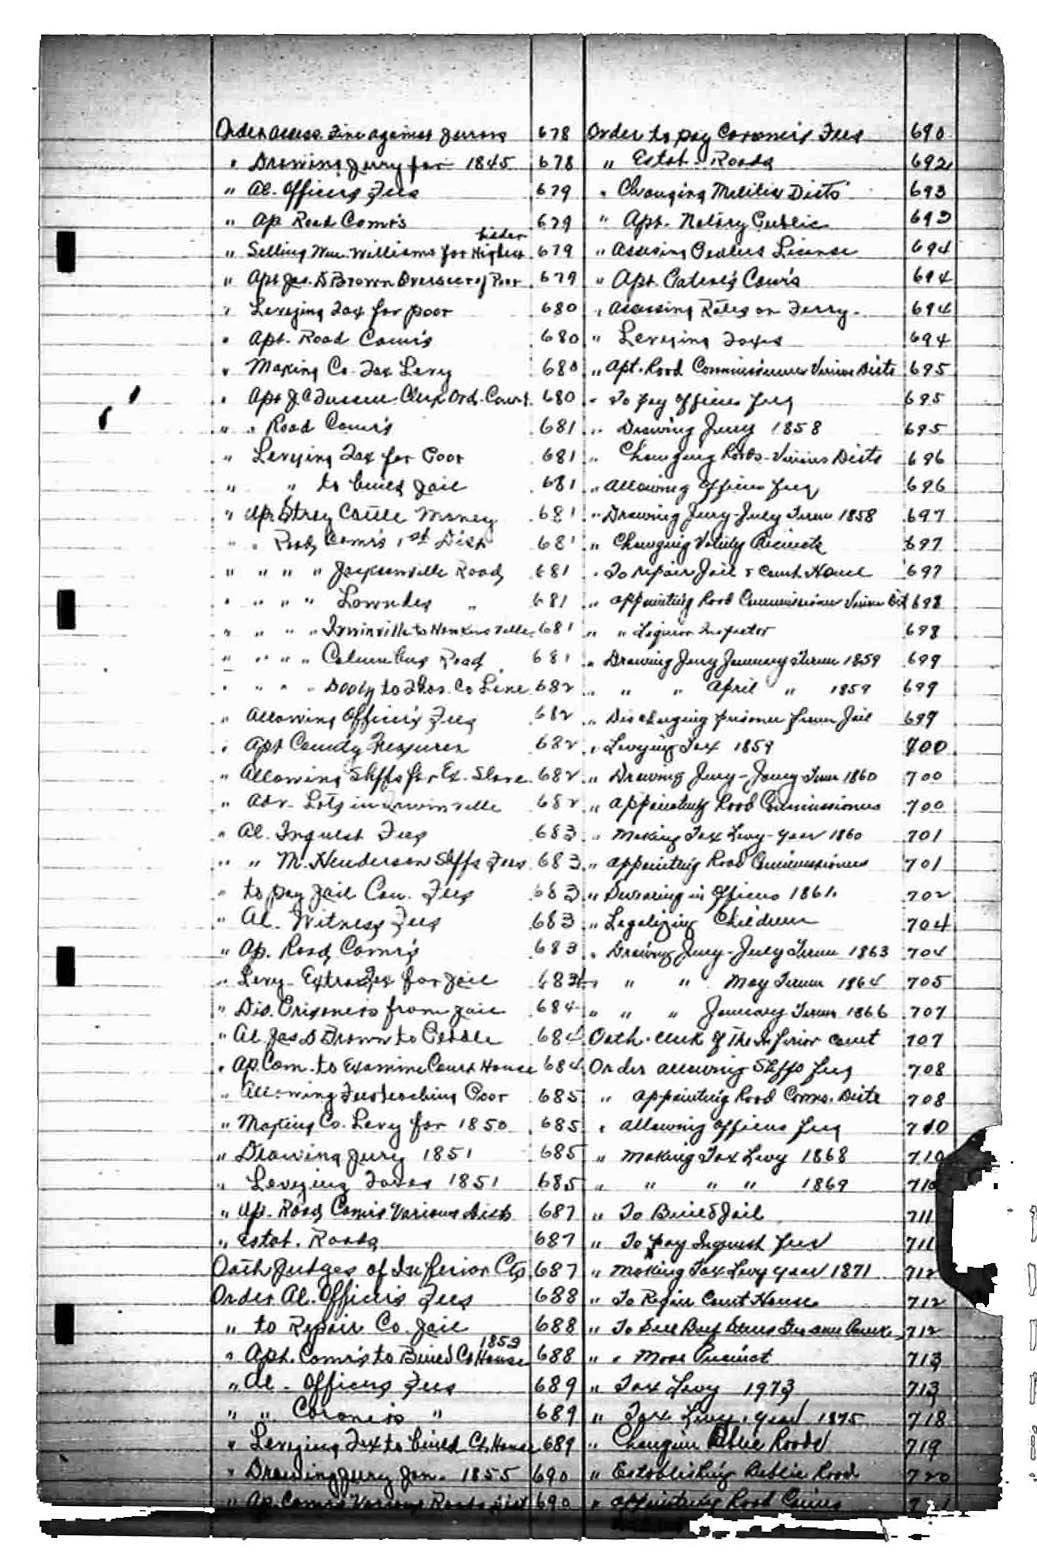 Order assess. Fine against Jurors 678
" Drawing Jury for 1845 678
" Al. Officers Fees 679
" Ap. Road Comrs 679
bidder
" Selling Wm. Williams for Highest 679
" Apt Jas. D Brown Overseer of Poor 679
" Levying Tax for poor 680
" Apt. Road Comr's 680
" Making Co. Tax Levy 680
" Apt J. C. Clerk Ord. Court 680
" " Road Comr's 681
" Levying Tax for Poor 681
" " to build Jail 681
" Ap. Stray Cattle Money 681
" " Road Comr's 1st Dist 681
" " " " Jacksonville Road 681
" " " " Lowndes " 681
" " " " Irwinville to Hawkinsville 681
" " " " Columbus Road 681
" " " " Dooly to Thos. Co Line 682
" Allowing Officer's Fees 682
" Apt County Treasurer 682
" Allowing Shffs for Ex. Slave 682
" Adv. Lots in Irwinville 682
" Al. Inquest Fees 683
" " M. Henderson Shffs Fees 683
" to pay Jail Com. Fees 683
" Al. Witness Fees 683
" Ap. Road Comr's 683
" Levy Extra Tax for Jail 683
" Dis. Prisoners from Jail 684
" Al Jas D Brown to Peddle 684
" Ap. Com. to Examine Court House 684
" Allowing Fees teaching Poor 685
" Making Co. Levy for 1850 685
" Drawing Jury 1851 685
" Levying Taxes 1851 685
" Ap. Road Comrs Various Dists 687
" Estab. Roads 687
Oath Judges of Inferior Cts 687
Order Al. Officers Fees 688
" to Repair Co. Jail 688
1853
" Apt. Comr's to Build Ct House 688
" Al. Officers Fees 689
" " Coroners " 689
" Levying Tax to build Ct. House 689
" Drawing Jury Jan. 1855 690
" Ap. Comr's Various Roads Dist 690
Order to pay Coroner's Fees 690
" Estab. Roads 692
" Changing Militia Dists 693
" Apt. Notary Public 693
" Assessing Dealers License 694
" Apt. Patrol's Comr's 694
" Assessing Rates on Ferry 694
" Levying Taxes 694
" Apt. Road Commissioners Various Dists 695
" To pay officers fees 695
" Drawing Jury 1858 695
" Changing Roads - Various Dists 696
" allowing officers fees 696
" Drawing Jury - July Term 1858 697
" Changing Voting Precincts 697
" To repair Jail & Court House 697
" appointing Road Commissioner Various Dist 698
" " Liquor Inspector 698
" Drawing Jury January Term 1859 699
" " " April " 1859 699
" Discharging prisoner from Jail 699
" Levying Tax 1859 700
" Drawing Jury - Jany Term 1860 700
" appointing Road Commissioners 700
" Making Tax Levy - year 1860 701
" appointing Road Commissioners 701
" Swearing in Officers 1861 702
" Legalizing Children 704
" Drawing Jury - July Term 1863 704
" " " May Term 1864 705
" " " January Term 1866 707
Oath - Clerk of The Inferior Court 707
Order allowing Shffs fees 708
" appointing Road Coms. Dists 708
" allowing officers fees 710
" making Tax Levy 1868 710
" " " " 1869 710
" To Build Jail 711
" To pay Inquest fees 711
" making Tax Levy year 1871 712
" To Repair Court House 712
" To 712
" " Move Precinct 713
" Tax Levy 1973 713
" Tax Levy, Year 1875 718
" Changing Public Roads 719
" Establishing Public Road 720
" appointing Road Coms 721